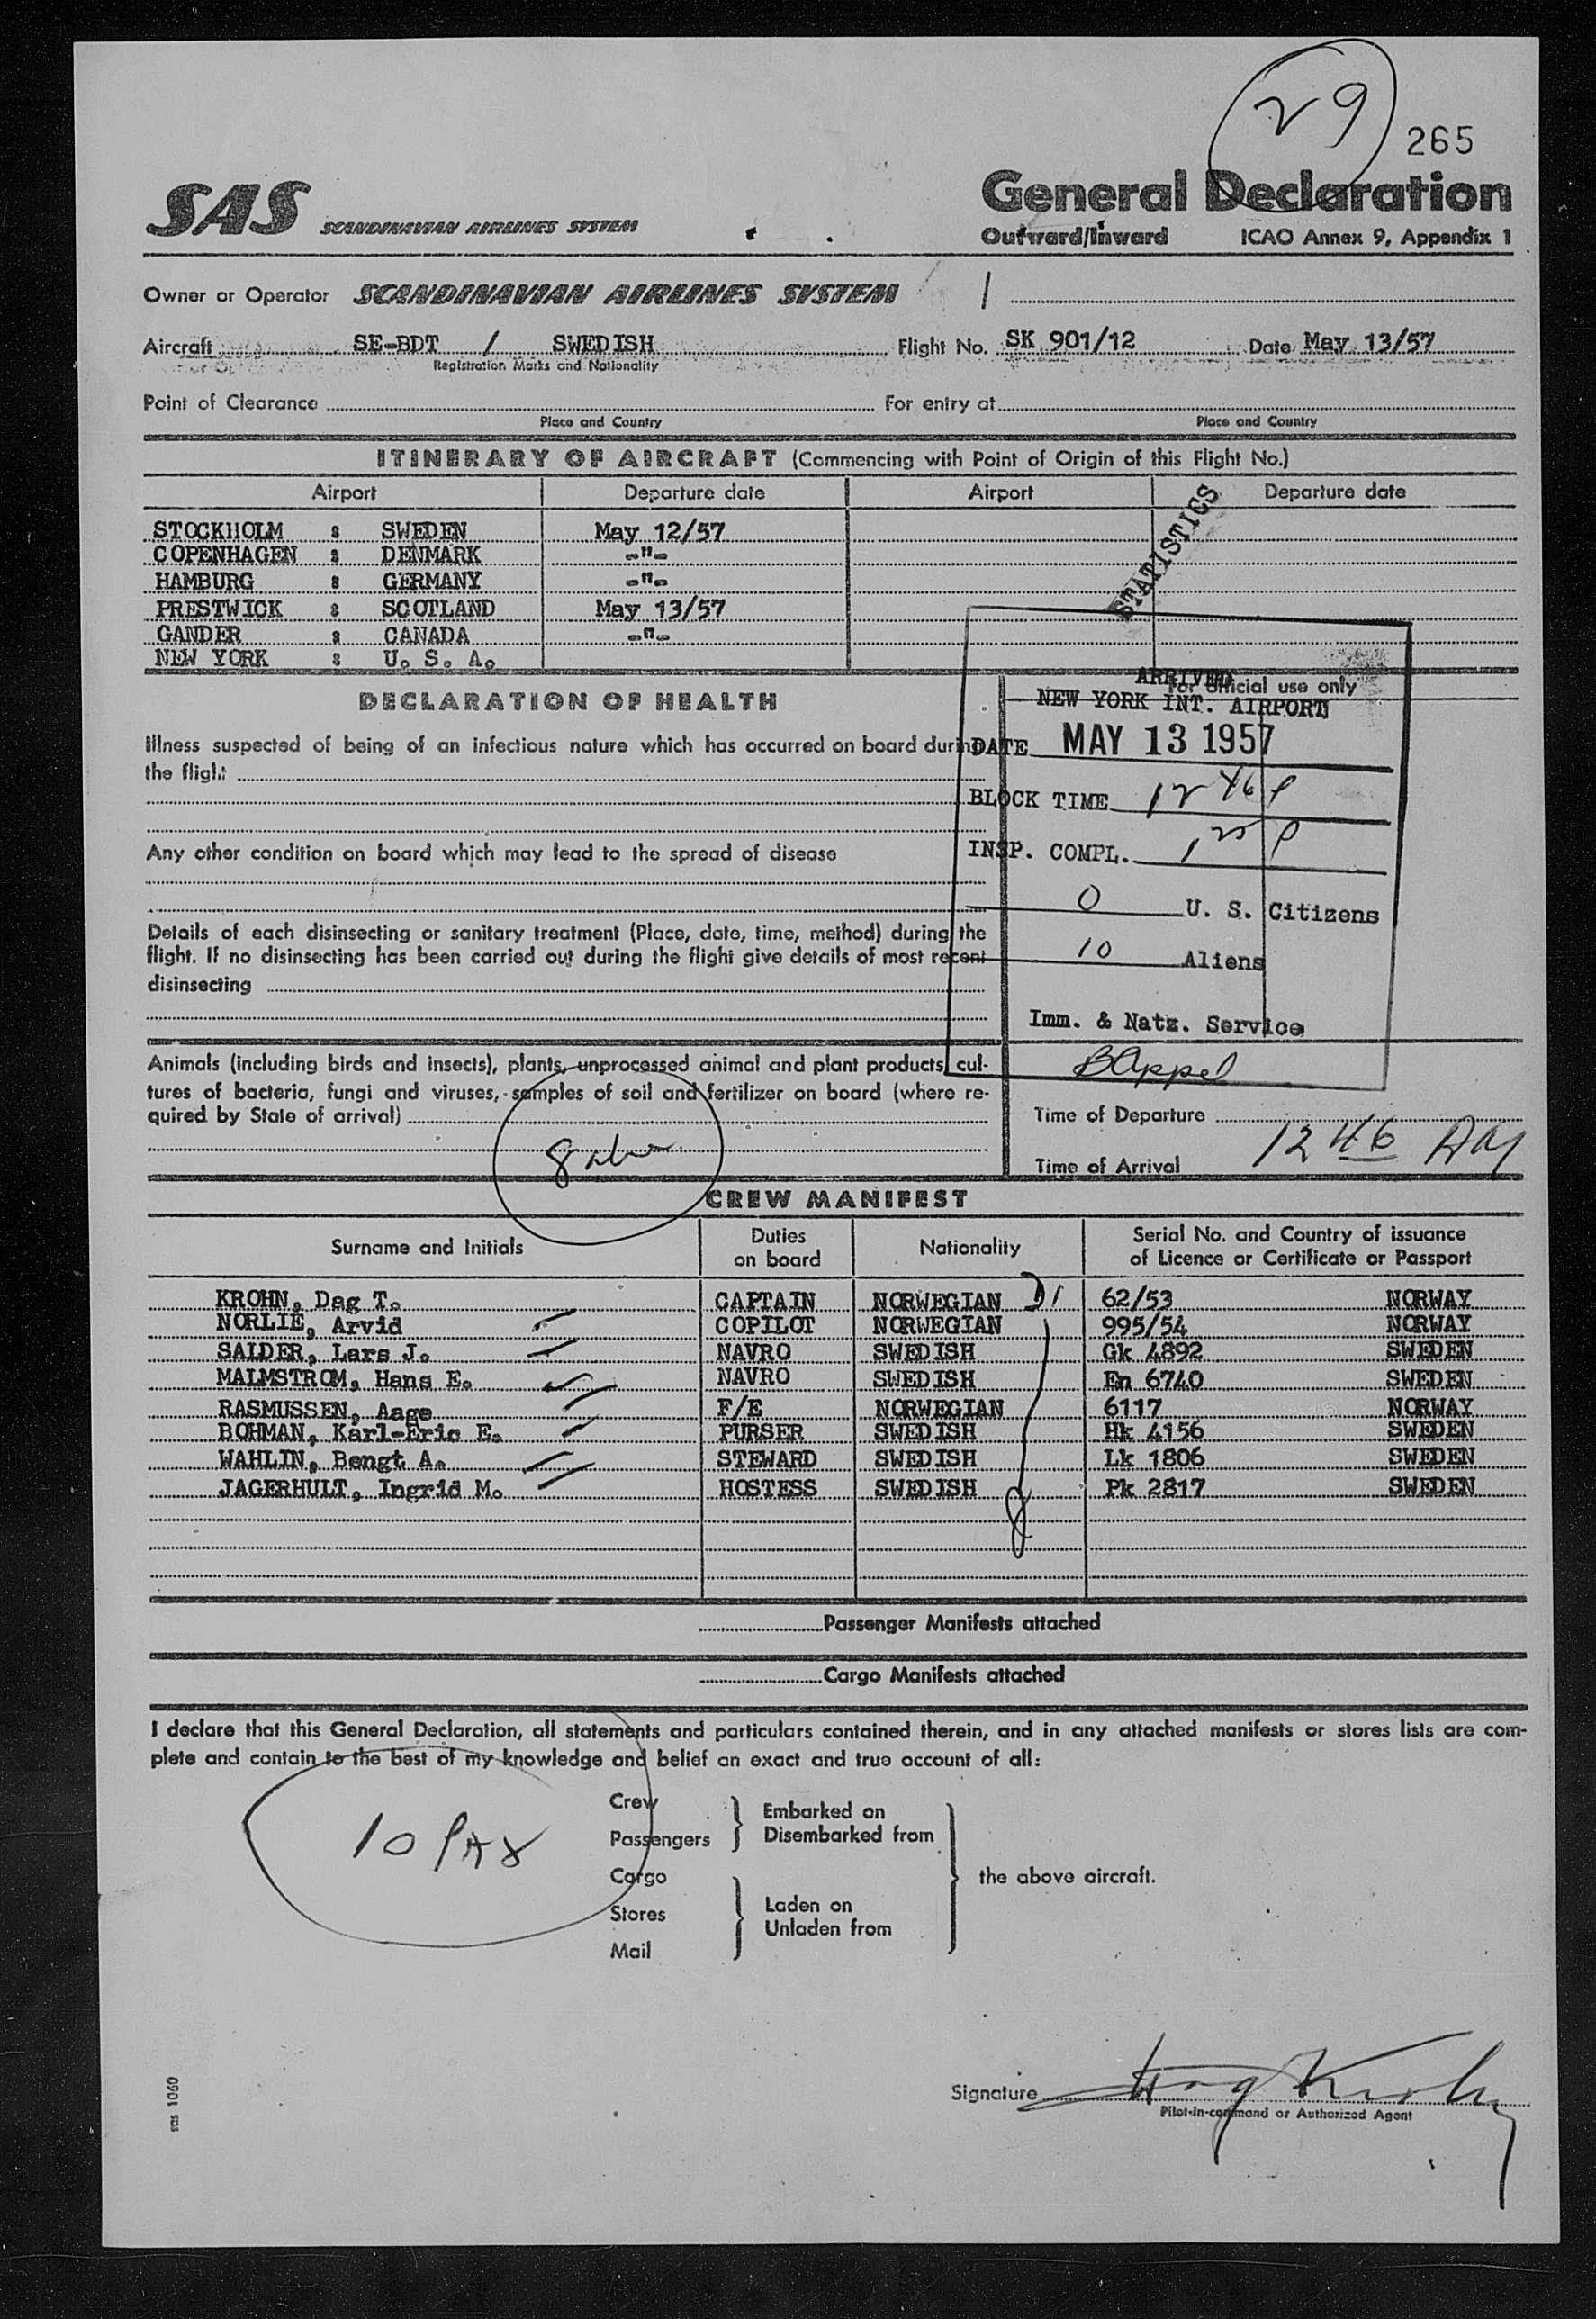 29
265
SAS SCANDINAVIAN AIRLINES SYSTEM
General Declaration
Outward/Inward ICAO Annex 9, Appendix 1
Owner or Operator SCANDINAVIAN AIRLINES SYSTEM
Aircraft SE-BDT / SWEDISH Flight No. SK 901/12 Date May 13/57
Registration Marks and Nationality
Point of Clearance For entry at
Place and Country Place and Country
ITINERARY OF AIRCRAFT (Commencing with Point of Origin of this Flight No.)
Airport Departure date Airport Departure date
STATISTICS
STOCKHOLM : SWEDEN May 12/57
COPENHAGEN : DENMARK -"-
HAMBURG : GERMANY -"-
PRESTWICK : SCOTLAND May 13/57
GANDER : CANADA -"-
NEW YORK : U. S. A.
DECLARATION OF HEALTH
Illness suspected of being of an infectious nature which has occurred on board during
the flight
Any other condition on board which may lead to the spread of disease
Details of each disinsecting or sanitary treatment (Place, date, time, method) during the
flight. If no disinsecting has been carried out during the flight give details of most recent
disinsecting
Animals (including birds and insects), plants, unprocessed animal and plant products, cul-
tures of bacteria, fungi and viruses, samples of soil and fertilizer on board (where re-
quired by State of arrival)
For official use only
ARRIVED
NEW YORK INT. AIRPORT
DATE MAY 13 1957
BLOCK TIME 12 46 P
INSP. COMPL. 1 25 P
0 U. S. Citizens
10 Aliens
Imm. & Natz. Service
BAppel
Time of Departure
Time of Arrival 12 46
CREW MANIFEST
Surname and Initials Duties on board Nationality Serial No. and Country of issuance of Licence or Certificate or Passport
KROHN, Dag T. CAPTAIN NORWEGIAN 62/53 NORWAY
NORLIE, Arvid COPILOT NORWEGIAN 995/54 NORWAY
SALDER, Lars J. NAVRO SWEDISH Gk 4892 SWEDEN
MALMSTROM, Hans E. NAVRO SWEDISH En 6740 SWEDEN
RASMUSSEN, Aage F/E NORWEGIAN 6117 NORWAY
BOHMAN, Karl-Eric E. PURSER SWEDISH Hk 4156 SWEDEN
WAHLIN, Bengt A. STEWARD SWEDISH Lk 1806 SWEDEN
JAGERHULT, Ingrid M. HOSTESS SWEDISH Pk 2817 SWEDEN
Passenger Manifests attached
Cargo Manifests attached
I declare that this General Declaration, all statements and particulars contained therein, and in any attached manifests or stores lists are com-
plete and contain to the best of my knowledge and belief an exact and true account of all:
10 PAX
Crew
Passengers
Embarked on
Disembarked from
Cargo
Stores
Mail
Laden on
Unladen from
the above aircraft.
Signature Dag Krohn
Pilot-in-command or Authorized Agent
sas 1060